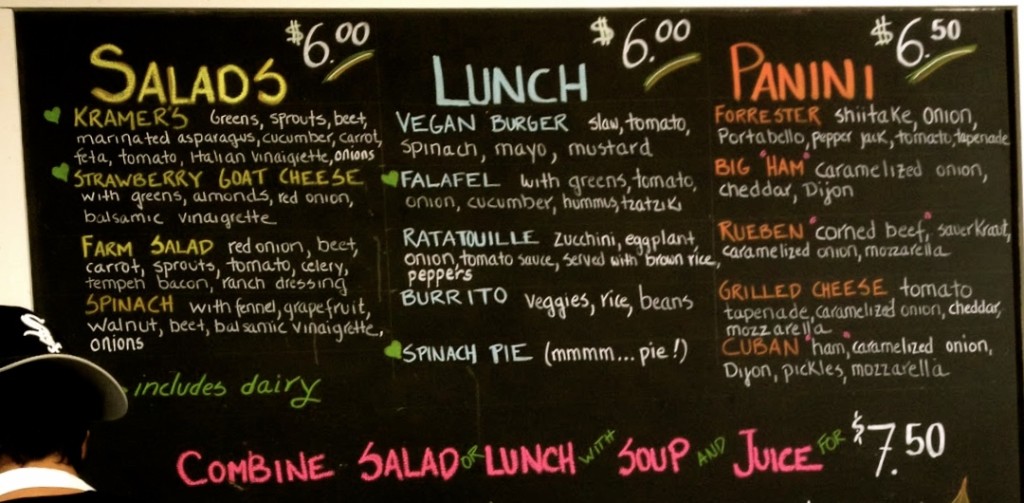 SALADS $6.00
KRAMER'S Greens, sprouts, beet,
marinated asparagus, cucumber, carrot,
feta, tomato, Italian vinaigrette, onions
STRAWBERRY GOAT CHEESE
with greens, almonds, red onion,
balsamic vinaigrette
FARM SALAD red onion, beet,
carrot, sprouts, tomato, celery,
tempeh bacon, ranch dressing
SPINACH with fennel, grapefruit,
walnut, beet, balsamic vinaigrette,
onions
includes dairy
LUNCH $6.00
VEGAN BURGER slaw, tomato,
spinach, mayo, mustard
FALAFEL with greens, tomato,
onion, cucumber, hummus, tzatziki
RATATOUILLE zucchini, eggplant,
onion, tomato sauce, served with brown rice,
peppers
BURRITO veggies, rice, beans
SPINACH PIE (mmmm...pie!)
PANINI $6.50
FORRESTER shiitake, onion,
Portabello, pepper jack, tomato, tapenade
BIG "HAM" caramelized onion,
cheddar, Dijon
RUEBEN "corned beef", sauerkraut,
caramelized onion, mozzarella
GRILLED CHEESE tomato
tapenade, caramelized onion, cheddar,
mozzarella
CUBAN "ham", caramelized onion,
Dijon, pickles, mozzarella
COMBINE SALAD OR LUNCH WITH SOUP AND JUICE FOR $7.50
Sox